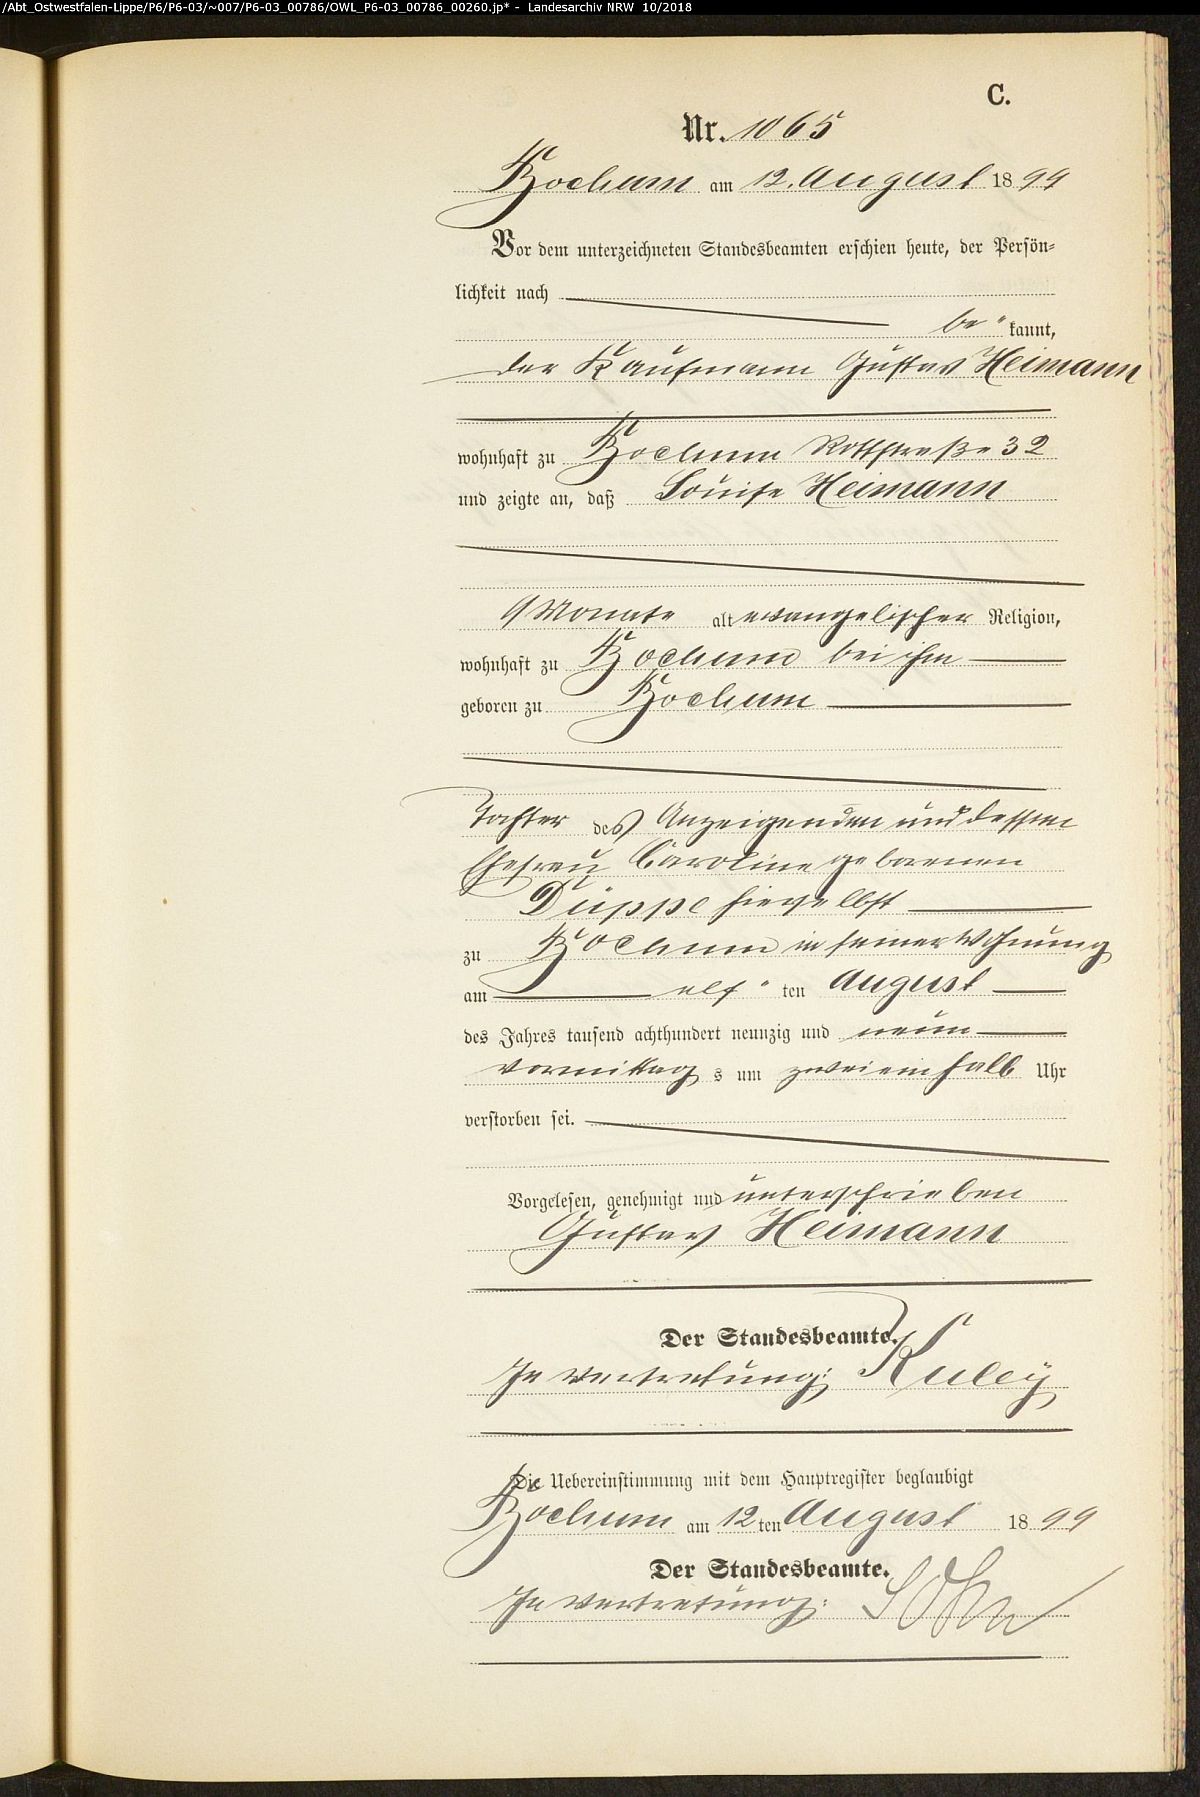 /Abt_Ostwestfalen-Lippe/P6/P6-03/~007/P6-03_00786/OWL_P6-03_00786_00260.jp* - Landesarchiv NRW 10/2018
C.
Nr. 1065
Bochum am 12. August 1899
Vor dem unterzeichneten Standesbeamten erschien heute, der Persön=
lichkeit nach
be " kannt,
der Kaufmann Gustav Heimann
wohnhaft zu Bochum Rottstraße 32
und zeigte an, daß Louise Heimann
9 Monate alt evangelischer Religion,
wohnhaft zu Bochum bei ihm
geboren zu Bochum
Tochter des Anzeigenden und dessen
Ehefrau Caroline geborenen
Düppe hierselbst
zu Bochum in seiner Wohnung
am elf " ten August
des Jahres tausend achthundert neunzig und neun
Vormittag s um zweieinhalb Uhr
verstorben sei.
Vorgelesen, genehmigt und unterschrieben
Gustav Heimann
Der Standesbeamte.
In Vertretung: Kuley
Die Uebereinstimmung mit dem Hauptregister beglaubigt
Bochum am 12 ten August 1899
Der Standesbeamte.
In Vertretung: